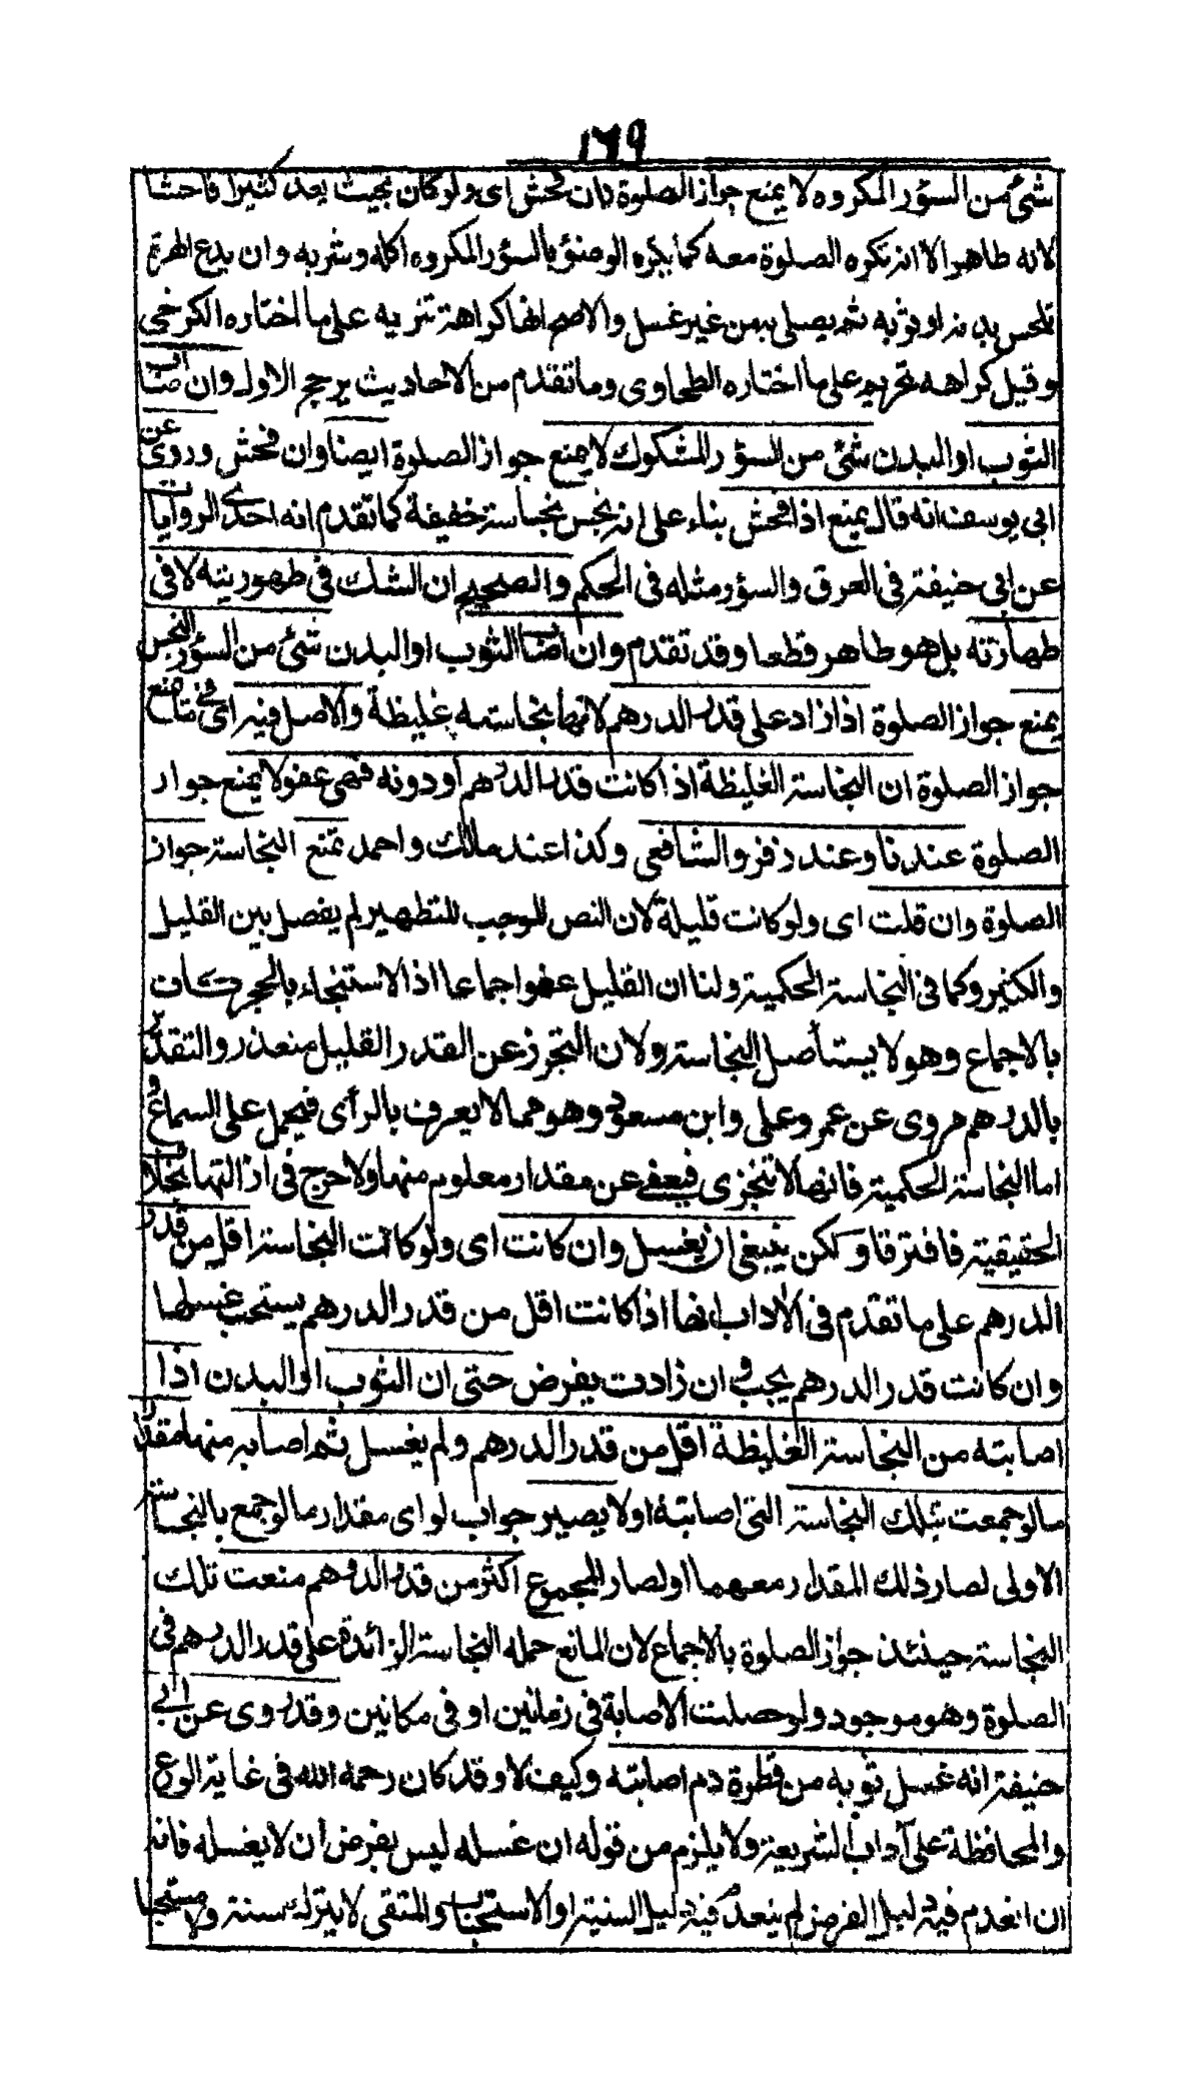 ١٦٩
شئ من السؤر المكروه لا يمنع جواز الصلوة وان فحش اى ولو كان بحيث يعد كثيرا فاحشا
لانه طاهر الا انه تكره الصلوة معه كما يكره الوضوء بالسؤر المكروه اكله وشربه وان يدع الهرة
تلحس بدنه او ثوبه ثم يصلى به من غير غسل والاصح انها كراهة تنزيه على ما اختاره الكرخى
وقيل كراهه تحريم على ما اختاره الطحاوى وما تقدم من الاحاديث يرجح الاول وان اصاب
الثوب او البدن شئ من السؤر المشكوك لا يمنع جواز الصلوة ايضا وان فحش وروى عن
ابى يوسف انه قال يمنع اذا فحش بناء على انه نجس نجاسة خفيفة كما تقدم انه احدى الروايات
عن ابى حنيفة فى العرق والسؤر مثله فى الحكم والصحيح ان الشك فى طهوريته لا فى
طهارته بل هو طاهر قطعا وقد تقدم وان اصاب الثوب او البدن شئ من السؤر النجس
يمنع جواز الصلوة اذا زاد على قدر الدرهم لانها نجاسته غليظة والاصل فيه اى فى منع
جواز الصلوة ان النجاسة الغليظة اذا كانت قدر الدرهم او دونه فهى عفو لا يمنع جواز
الصلوة عندنا وعند زفر والشافعى وكذا عند مالك واحمد تمنع النجاسة جواز
الصلوة وان قلت اى ولو كانت قليلة لان النص الموجب للتطهير لم يفصل بين القليل
والكثير وكما فى النجاسة الحكمية ولنا ان القليل عفو اجماعا اذ الاستنجاء بالحجر كاف
بالاجماع وهو لا يستأصل النجاسة ولان التحرز عن القدر القليل متعذر والتقدير
بالدرهم مروى عن عمر وعلى وابن مسعود وهو مما لا يعرف بالرأى فيحمل على السماع و
اما النجاسة الحكمية فانها لا تتجزى فيعفى عن مقدار معلوم منها ولا حرج فى ازالتها بخلاف
الحقيقية فافترقا ولكن ينبغى ان يغسل وان كانت اى ولو كانت النجاسة اقل من قدر
الدرهم على ما تقدم فى الآداب انها اذا كانت اقل من قدر الدرهم يستحب غسلها
وان كانت قدر الدرهم يجب وان زادت يفرض حتى ان الثوب او البدن اذا
اصابته من النجاسة الغليظة اقل من قدر الدرهم ولم يغسل ثم اصابه منها مقدار
ما لو جمعت تلك النجاسة التى اصابته اولا يصير جواب لو اى مقدار ما لو جمع بالنجاسة
الاولى لصار ذلك المقدار معهما او لصار المجموع اكثر من قدر الدرهم منعت تلك
النجاسة حينئذ جواز الصلوة بالاجماع لان المانع حمله النجاسة الزائدة على قدر الدرهم فى
الصلوة وهو موجود ولو حصلت الاصابة فى زمانين او فى مكانين وقد روى عن ابى
حنيفة انه غسل ثوبه من قطرة دم اصابته وكيف لا وقد كان رحمه الله فى غاية الورع
والمحافظة على آداب الشريعة ولا يلزم من قوله ان غسله ليس بفرض ان لا يغسله فانه
ان انعدم فيه دليل الفرض لم ينعدم فيه دليل السنية او الاستحباب والمتقى لا يترك سنة ولا مستحبا